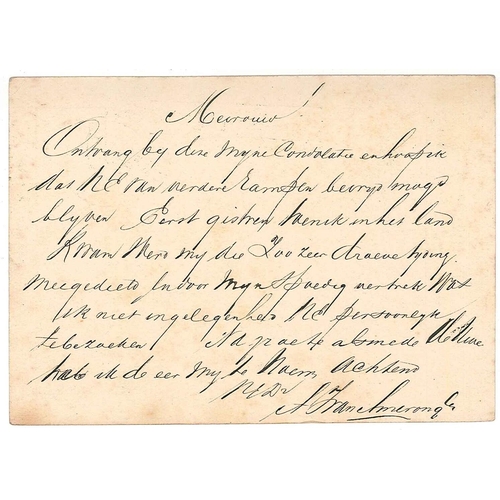 Mevrouw!
Ontvang by deze myne Condolatie en hoop ik
dat UE van verdere Rampen bevryd mogd
blyven Eerst gistren wen ik in het land
kwam werd my die Zoo zeer droeve tyding
meegedield In door myn spoedig vertrek Was
ik niet in gelegenheid UE persoonlyk
te bezoeken alsmede
heb ik de eer my te Noem Achtend
UEDr